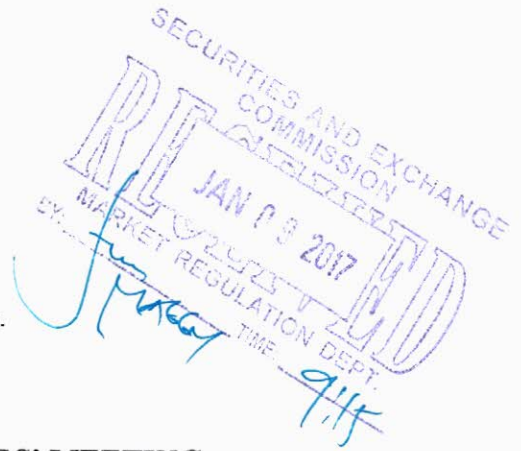 SECURITIES AND EXCHANGE
COMMISSION
RECEIVED
JAN 09 2017
MARKET REGULATION DEPT.
BY: TIME: 9:15